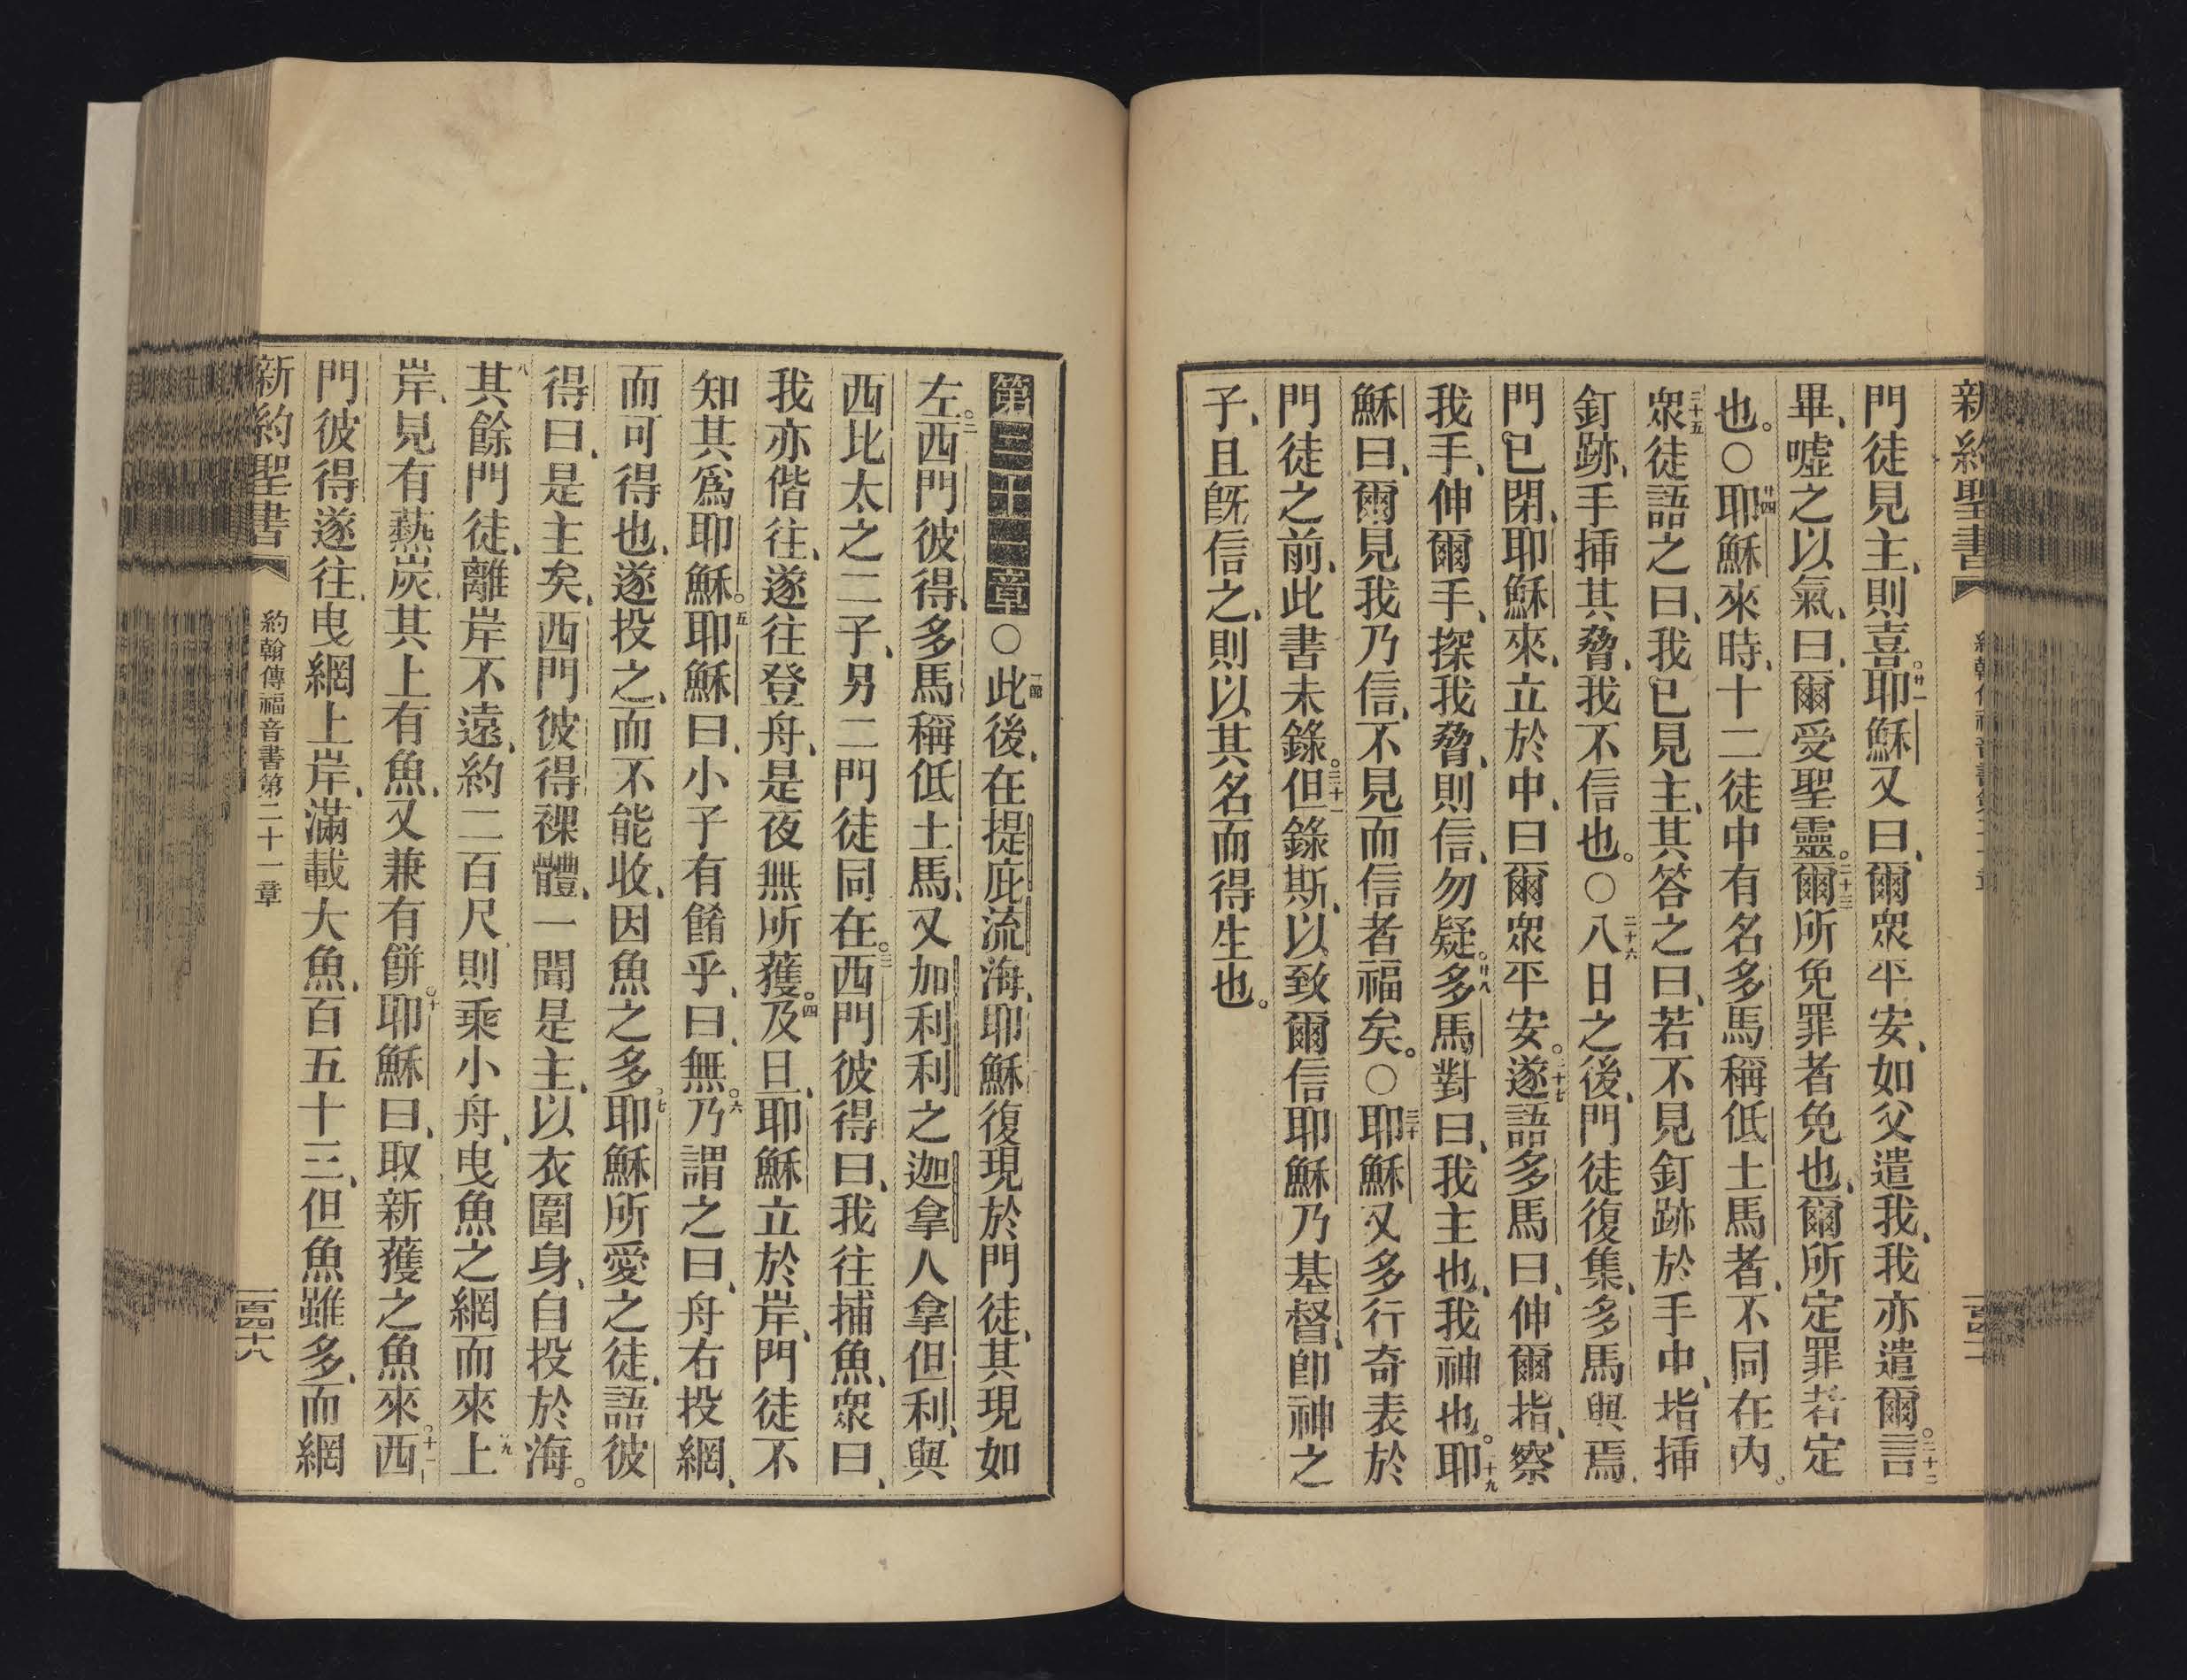 新約聖書
門徒見主、則喜。廿一耶穌又曰、爾眾平安、如父遣我、我亦遣爾。二十二言
畢、噓之以氣、曰、爾受聖靈。二十三爾所免罪者免也、爾所定罪者定
也。○廿四耶穌來時、十二徒中有名多馬稱低土馬者、不同在內。
二十五眾徒語之曰、我已見主、其答之曰、若不見釘跡於手中、指插
釘跡、手插其脅、我不信也。○二十六八日之後、門徒復集、多馬與焉、
門已閉、耶穌來、立於中、曰爾眾平安。二十七遂語多馬曰、伸爾指、察
我手、伸爾手、探我脅、則信、勿疑。廿八多馬對曰、我主也、我神也。二十九耶
穌曰、爾見我乃信、不見而信者福矣。○三十耶穌又多行奇表於
門徒之前、此書未錄。三十一但錄斯、以致爾信耶穌乃基督、卽神之
子、且旣信之、則以其名而得生也。
第二十一章○一節此後、在提庇流海、耶穌復現於門徒、其現如
左。二西門彼得、多馬稱低土馬、又加利利之迦拿人拿但利、與
西比太之二子、另二門徒同在。三西門彼得曰、我往捕魚、眾曰、
我亦偕往、遂往登舟、是夜無所獲。四及旦、耶穌立於岸、門徒不
知其爲耶穌。五耶穌曰、小子有餚乎、曰、無。六乃謂之曰、舟右投網、
而可得也、遂投之、而不能收、因魚之多。七耶穌所愛之徒、語彼
得曰、是主矣、西門彼得裸體、一聞是主、以衣圍身、自投於海。
八其餘門徒、離岸不遠、約二百尺、則乘小舟、曳魚之網而來。九上
岸、見有爇炭、其上有魚、又兼有餅。十耶穌曰、取新獲之魚來。十一西
門彼得遂往、曳網上岸、滿載大魚、百五十三、但魚雖多、而網
新約聖書
約翰傳福音書第二十一章
一百四十八